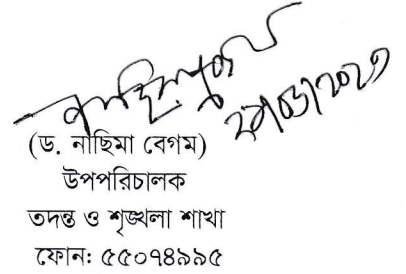 (ড. নাছিমা বেগম)
উপপরিচালক
তদন্ত ও শৃঙ্খলা শাখা
ফোন: ৫৫০৭৪৯৯৫